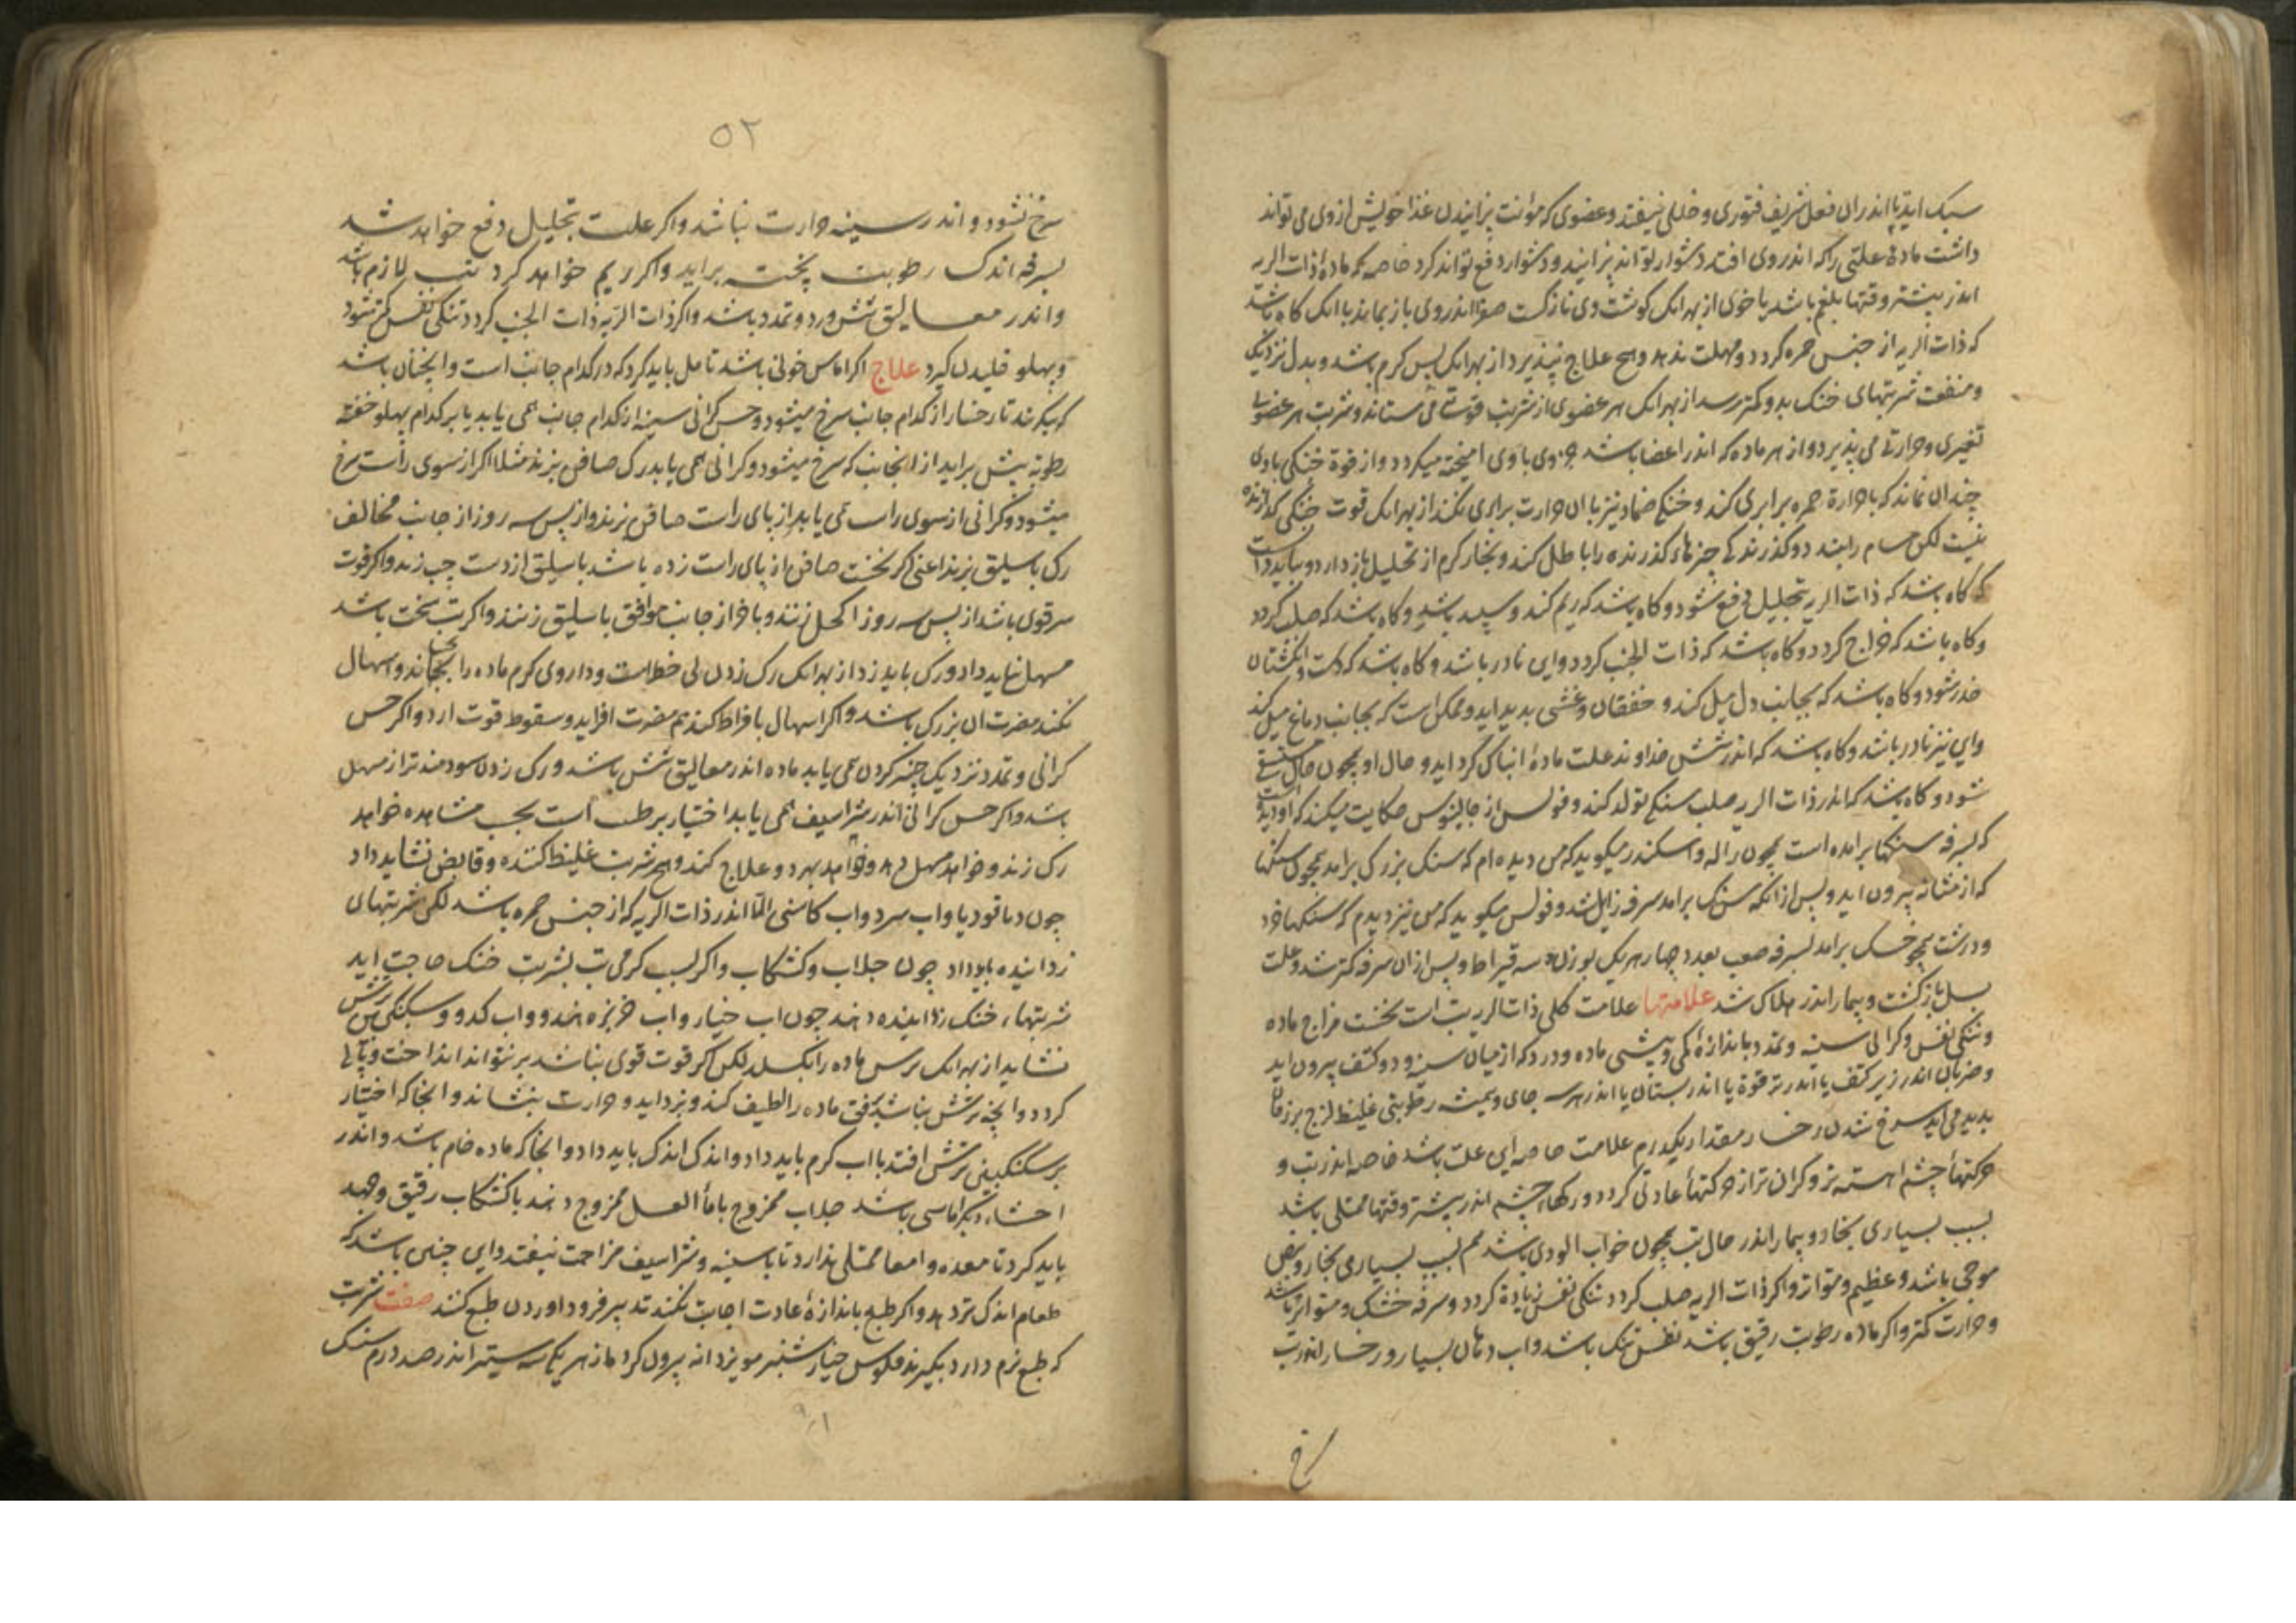 سبک اید تا اندران فعل شریف فتوری و خللی نیفتد و عضوی که مؤنت پزانیدن غذا خویش از وی می تواند
داشت مادهٔ علتی را که اندر وی افتد دشوار تواند پزانید و دشوار دفع تواند کرد خاصه که مادهٔ ذات الریه
اندر بیشتر وقتها بلغم باشد یا خون از بهر انک کوشت وی نازکست صفرا اندر وی باز نماند با انک کاه باشد
که ذات الریه از جنس حمره کردد و مهلت ندهد و هیچ علاج نپذیرد از بهر انک بس کرم باشد و بدل نزدیک
و منفعت شربتهای خنک بدو کمتر رسد از بهر انک هر عضوی از شربت قوتی می ستاند و شربت هر عضوی
تغیری و حرارتی می پذیرد و از هر ماده که اندر اعضا باشد جزوی با وی امیخته میکردد و از قوة خنکی با وی
چندان نماند که با حرارة حمره برابری کند و خنکی ضماد نیز با ان حرارت برابری نکند از بهر انک قوت خنکی کذرنده
نیست لکن مسام را ببندد و کذرندکی چیزهای کذرنده را باطل کند و بخار کرم از تحلیل باز دارد و بباید دانست
که کاه باشد که ذات الریه بتحلیل دفع شود و کاه باشد که ریم کند و سپید باشد و کاه باشد که صلب کردد
و کاه باشد که خراج کردد و کاه باشد که ذات الجنب کردد و این نادر باشد و کاه باشد که دست و انکشتان
خدر شود و کاه باشد که بجانب دل میل کند و خفقان و غشی پدید اید و ممکن است که بجانب دماغ میل کند
و این نیز نادر باشد و کاه باشد که اندر شش خداوند علت مادهٔ انباکی کرد اید و حال او همچون حال مستسقی
شود و کاه باشد که اندر ذات الریه صلب سنکی تولد کند و فولس از جالینوس حکایت میکند که او دیده است
که بسرفه سنکها برامده است همچون ژاله و اسکندر میکوید که من دیده ام که سنک بزرک برامد همچون سنکها
که از مثانه بیرون اید و پس از انکه سنک برامد سرفه زایل شد و فولس میکوید که من نیز دیدم که سنکها خرد
و درشت همچو خسک برامد بسرفه صعب بعدد چهار هر یک بوزن سه قیراط و پس از ان سرفه کمتر شد و علت
بسل بازکشت و بیمار اندر هلاک شد علامتها علامت کلی ذات الریه تب است نخست مزاج ماده
و تنکی نفس و کرانی سینه و تمدد باندازهٔ کمی و بیشی ماده و درد که از میان سینه و دو کتف بیرون اید
و ضربان اندر زیر کتف یا اندر ترقوة یا اندر بستان یا اندر هر سه جای و همیشه رطوبتی غلیظ لزج بر زفان
پدید می اید سرخ شدن رخسار مقدار یکدرم علامت خاصه این علت باشد خاصه اندر تب و
حرکتهاء چشم اهسته تر و کران تر از حرکتهاء عادتی کردد و رکهاء چشم اندر بیشتر وقتها ممتلی باشد
بسبب بسیاری بخار و بیمار اندر حال تب همچون خواب الودی باشد هم بسبب بسیاری بخار و نبض
موجی باشد و عظیم و متواتر و اکر ذات الریه صلب کردد تنکی نفس زیادة کردد و سرفه خشک و متواتر باشد
و حرارت کمتر و اکر ماده رطوبت رقیق باشد نفس تنک باشد و اب دهان بسیار و رخسار اندر تب
سرخ
۵۲
سرخ نشود و اندر سینه حرارت نباشد و اکر علت بتحلیل دفع خواهد شد
بسرفه اندک رطوبت پخته براید و اکر ریم خواهد کرد تب لازم باشد
و اندر معالیق شش درد و تمدد باشد و اکر ذات الریه ذات الجنب کردد تنکی نفس کمتر شود
و پهلو خلیدن کیرد علاج اکر اماس خونی باشد تامل باید کرد که در کدام جانب است و انچنان باشد
که بنکرند تا رخسار از کدام جانب سرخ میشود و حس کرانی سینه از کدام جانب همی یابد یا بر کدام پهلو خفته
رطوبه بیش براید از انجانب که سرخ میشود و کرانی همی یابد رک صافن بزنند مثلا اکر از سوی راست سرخ
میشود و کرانی از سوی راست می یابد از پای راست صافن بزنند و از پس سه روز از جانب مخالف
رک باسلیق بزنند اعنی اکر نخست صافن از پای راست زده باشد باسلیق از دست چپ زنند و اکر قوت
سر قوی باشد از پس سه روز اکحل زنند و باخر از جانب موافق باسلیق زنند و اکر تب سخت باشد
مسهل نباید داد و رک باید زد از بهر انک رک زدن بی خطر است و داروی کرم ماده را بجنباند و اسهال
نکند مضرت ان بزرک باشد و اکر اسهال بافراط کند هم مضرت افزاید و سقوط قوت ارد و اکر حس
کرانی و تمدد نزدیک چنبر کردن همی یابد ماده اندر معالیق شش باشد و رک زدن سودمندتر از مسهل
باشد و اکر حس کرانی اندر شراسیف همی یابد اختیار بر طبیب است بحسب مشاهده خواهد
رک زند و خواهد مسهل دهد و خواهد بهر دو علاج کند و هیچ شربت غلیظ کننده و قابض نشاید داد
چون دیاقودیا و اب سرد و اب کاسنی الا اندر ذات الریه که از جنس حمره باشد لکن شربتهای
زداینده باید داد چون جلاب و کشکاب و اکر بسبب کرمی تب بشربت خنک حاجت اید
شربتهاء خنک زداینده دهند چون اب خیار و اب خربزه هندو و اب کدو و سکنکبین ترش
نشاید از بهر انک ترش ماده را بکسلد لکن اکر قوت قوی نباشد بر نتواند انداخت و تباهی
کردد و انچه ترش نباشد تفت ماده را لطیف کند و بزداید و حرارت بنشاند و انجا که اختیار
بر سکنکبینی ترش افتد با اب کرم باید داد و اندک اندک باید داد و انجا که ماده خام باشد و اندر
احشاء دیکر اماسی باشد جلاب ممزوج با ماء العسل ممزوج دهند با کشکاب رقیق و جهد
باید کرد تا معده و امعا ممتلی ندارد تا با سینه و شراسیف مزاحمت نیفتد و این چنین باشد که
طعام اندک تر دهد و اکر طبع باندازهٔ عادت اجابت نکند تدبیر فرود اوردن طبع کنند صفت شربت
که طبع نرم دارد بکیرند فلوس خیار شنبر مویز دانه بیرون کرده از هر یکی سه ستیر اندر صد درم سنک